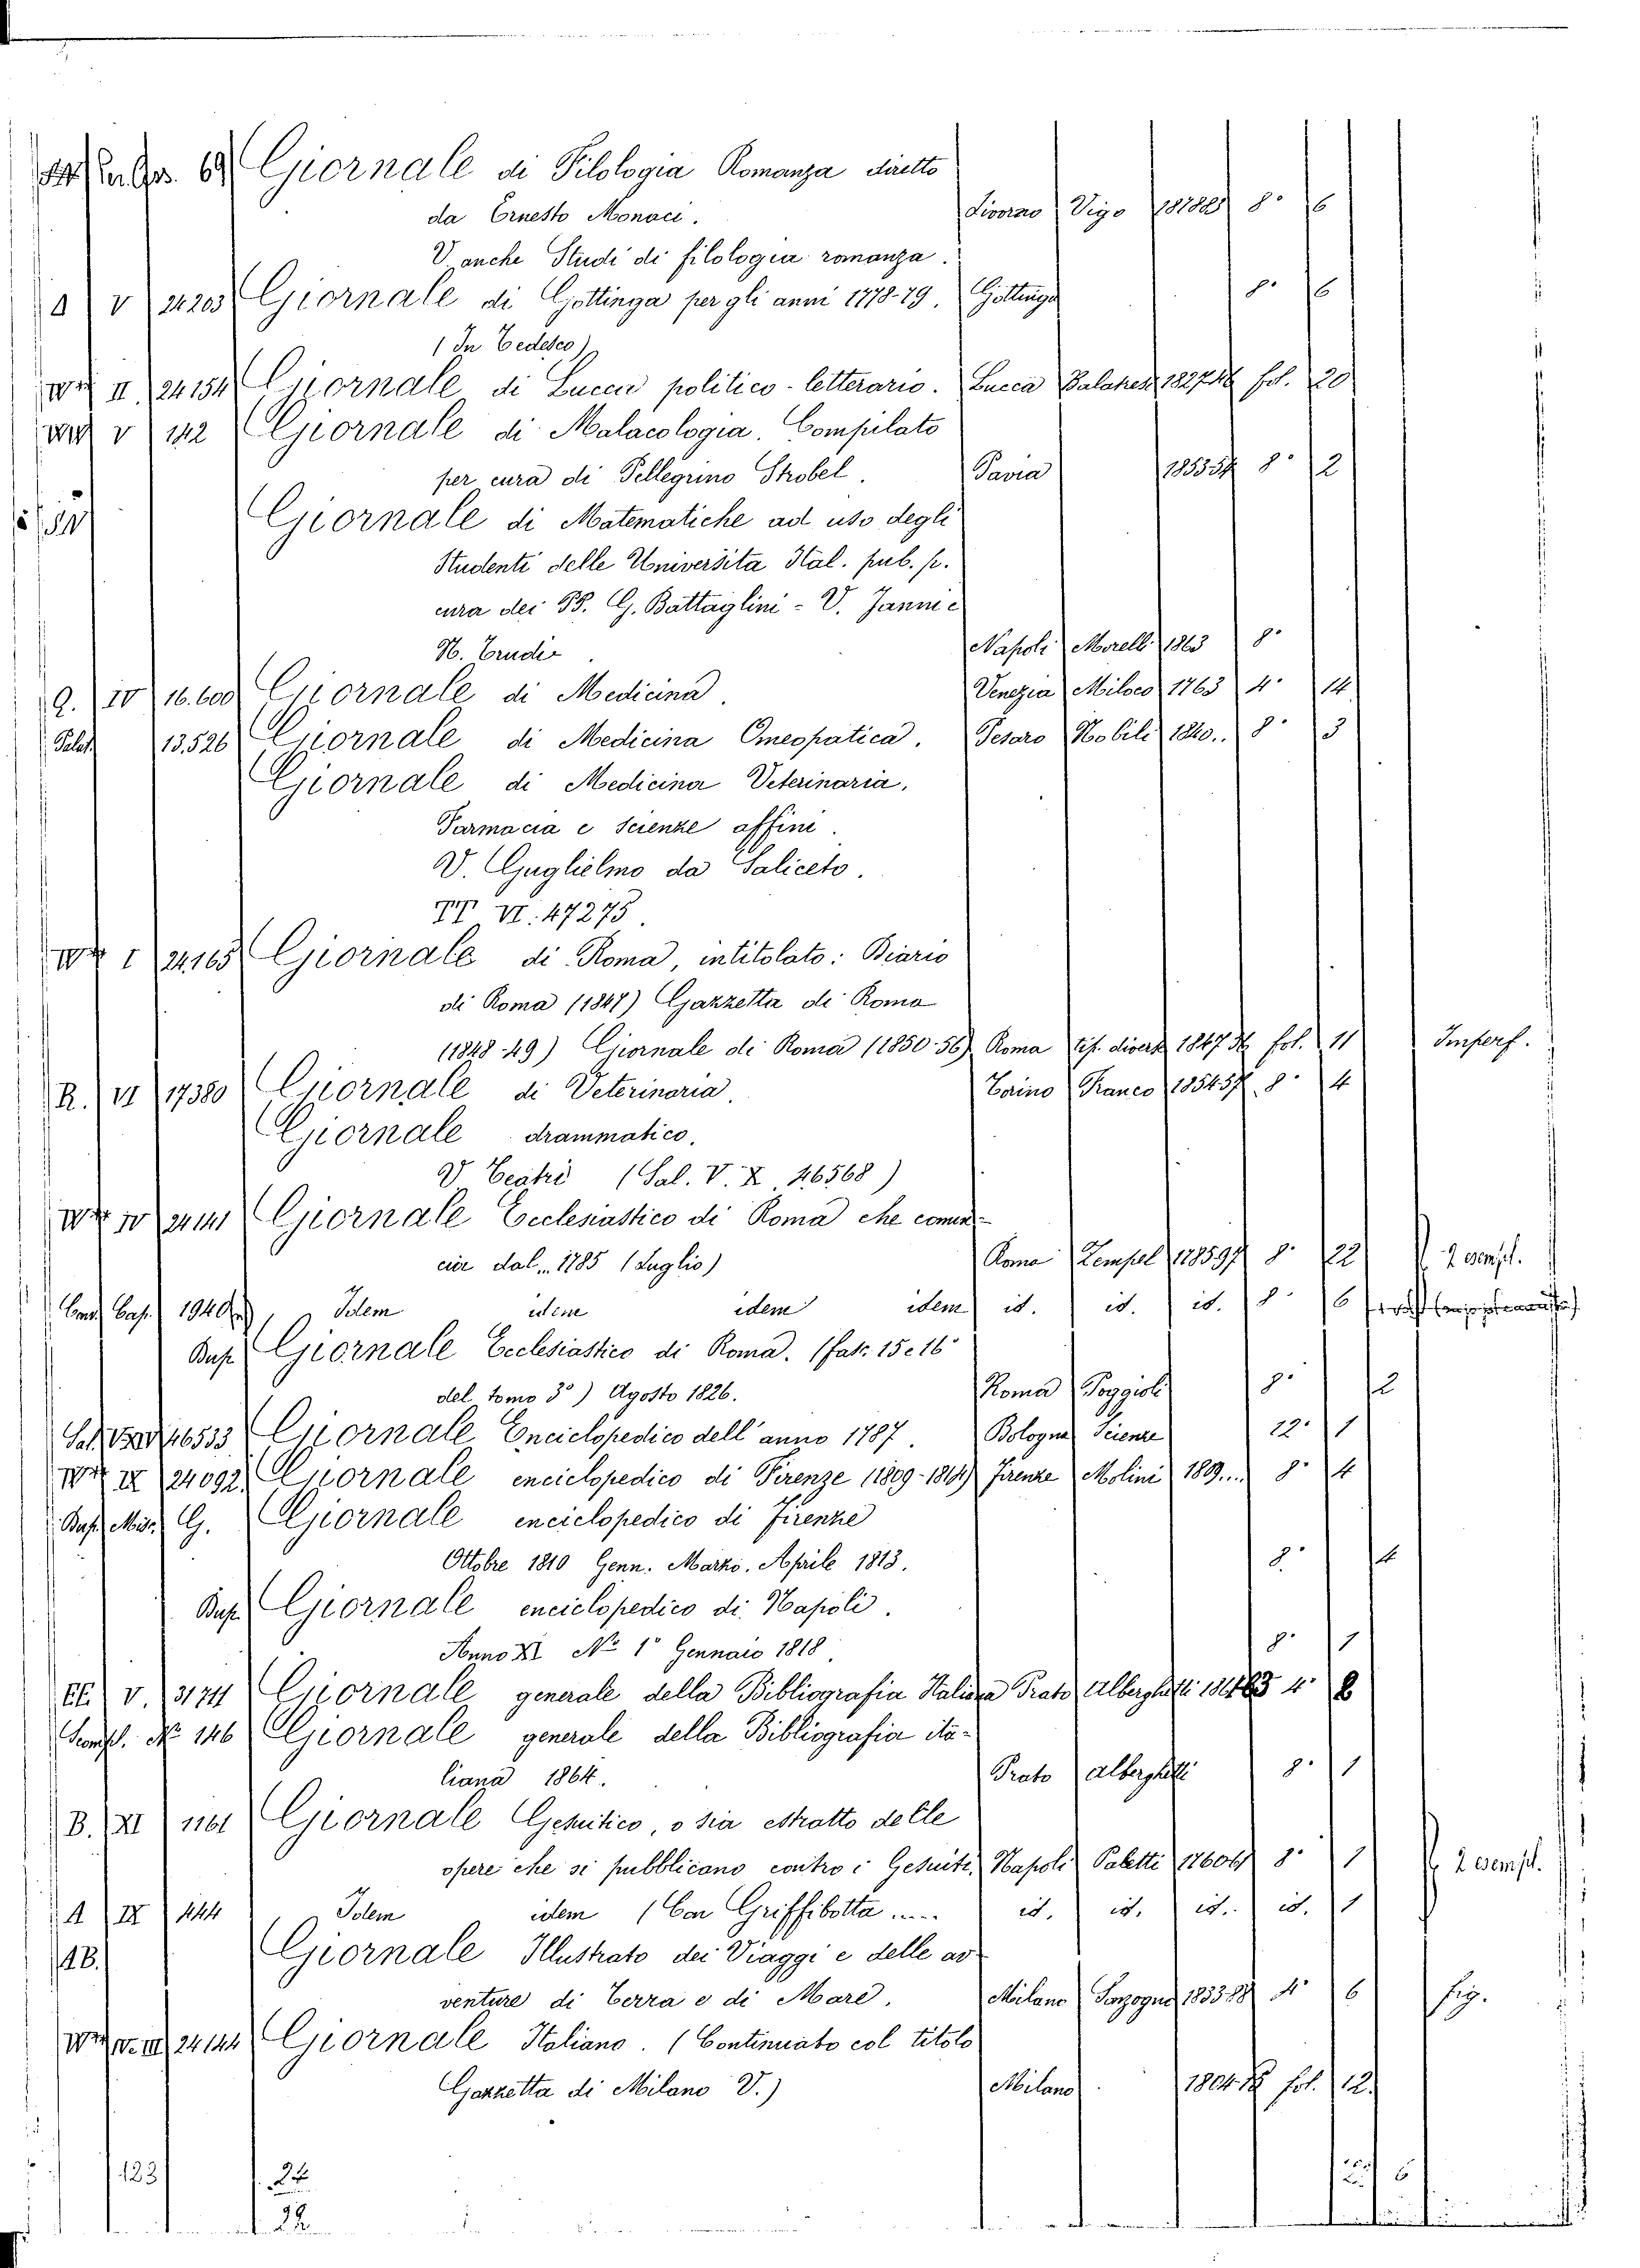 Giornale di Filologia Romanza diretto
da Ernesto Monaci. Livorno Vigo 8° 6
V. anche Studi di filologia romanza.
A V 24203 Giornale di Gottinga per gli anni 1778-79. Gottinga 8° 6
(In Tedesco)
II 24154 Giornale di Lucca politico-letterario. Lucca fol. 20
V 142 Giornale di Malacologia. Compilato
per cura di Pellegrino Strobel. Pavia 1853 54 8° 2
Giornale di Matematiche ad uso degli
Studenti delle Universita Ital. pub. p.
cura dei PP. G. Battaglini - V. Janni e
N. Trudi Napoli Morelli 1863 8°
Q. IV 16.600 Giornale di Medicina Venezia Miloco 1763 4° 14
Palat. 13.526 Giornale di Medicina Omeopatica. Pesaro Nobili 1840.. 8° 3
Giornale di Medicina Veterinaria,
Farmacia e Scienze affini.
V. Guglielmo da Saliceto.
TT VI. 47275
I 24.165 Giornale di Roma, intitolato: Diario
di Roma (1847) Gazzetta di Roma
(1848-49) Giornale di Roma (1850-56) Roma tip. divers. 1847 56 fol. 11 Imperf.
R. VI 17380 Giornale di Veterinaria. Torino Franco 1854 57 8° 4
Giornale drammatico.
V Teatri (Sal. V. X. 46568)
IV 24141 Giornale Ecclesiastico di Roma che comin-
cia dal... 1785 (Luglio) Roma Zempel 1785 97 8° 22 2 esempl.
Cas. 1940 Idem idem idem idem id. id. id. 8° 6
Bus. Giornale Ecclesiastico di Roma. (fatt. 15 e 16
del tomo 3°) Agosto 1826. Roma Poggioli 8° 2
46533 Giornale Enciclopedico dell'anno 1787. Bologna Scienze 12° 1
IX 24092 Giornale enciclopedico di Firenze (1809-1814) Firenze Molini 1809... 8° 4
Bus. Mis. G. Giornale enciclopedico di Firenze
Ottobre 1810 Genn. Marzo. Aprile 1813. 8° 4
Bus. Giornale enciclopedico di Napoli.
Anno XI N° 1° Gennaio 1818 8° 1
V. 31711 Giornale generale della Bibliografia Italiana Prato Alberghetti 4° 8
N° 146 Giornale generale della Bibliografia ita-
liana 1864. Prato Alberghetti 8° 1
B. XI 1161 Giornale Gesuitico, o sia estratto delle
opere che si pubblicano contro i Gesuiti. Napoli Paletti 1760 61 8° 1 2 esempl.
A IX 444 Idem idem (Con Griffibotta ..... id. id. id. id. 1
AB. Giornale Illustrato dei Viaggi e delle av-
venture di Terra e di Mare. Milano Sonzogno 1883 88 4° 6 fig.
III 24144 Giornale Italiano. (Continuato col titolo
Gazzetta di Milano V.) Milano 1804 fol. 12.
123 24
22